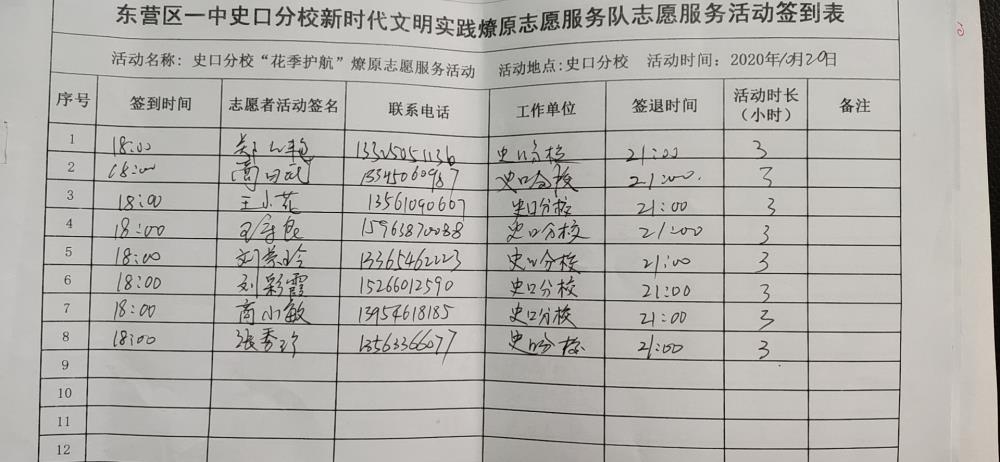 东营区一中史口分校新时代文明实践燎原志愿服务队志愿服务活动签到表
活动名称: 史口分校“花季护航”燎原志愿服务活动 活动地点:史口分校 活动时间: 2020年10月20日
序号 签到时间 志愿者活动签名 联系电话 工作单位 签退时间 活动时长(小时) 备注
1 18:00 13325051136 史口分校 21:00 3
2 18:00 13345060987 史口分校 21:00. 3
3 18:00 王小花 13561090607 史口分校 21:00 3
4 18:00 15963870088 史口分校 21:00 3
5 18:00 刘荣玲 13365462223 史口分校 21:00 3
6 18:00 刘彩霞 15266012590 史口分校 21:00 3
7 18:00 商小敏 13954618185 史口分校 21:00 3
8 18:00 张秀珍 13563366077 史口分校 21:00 3
9
10
11
12